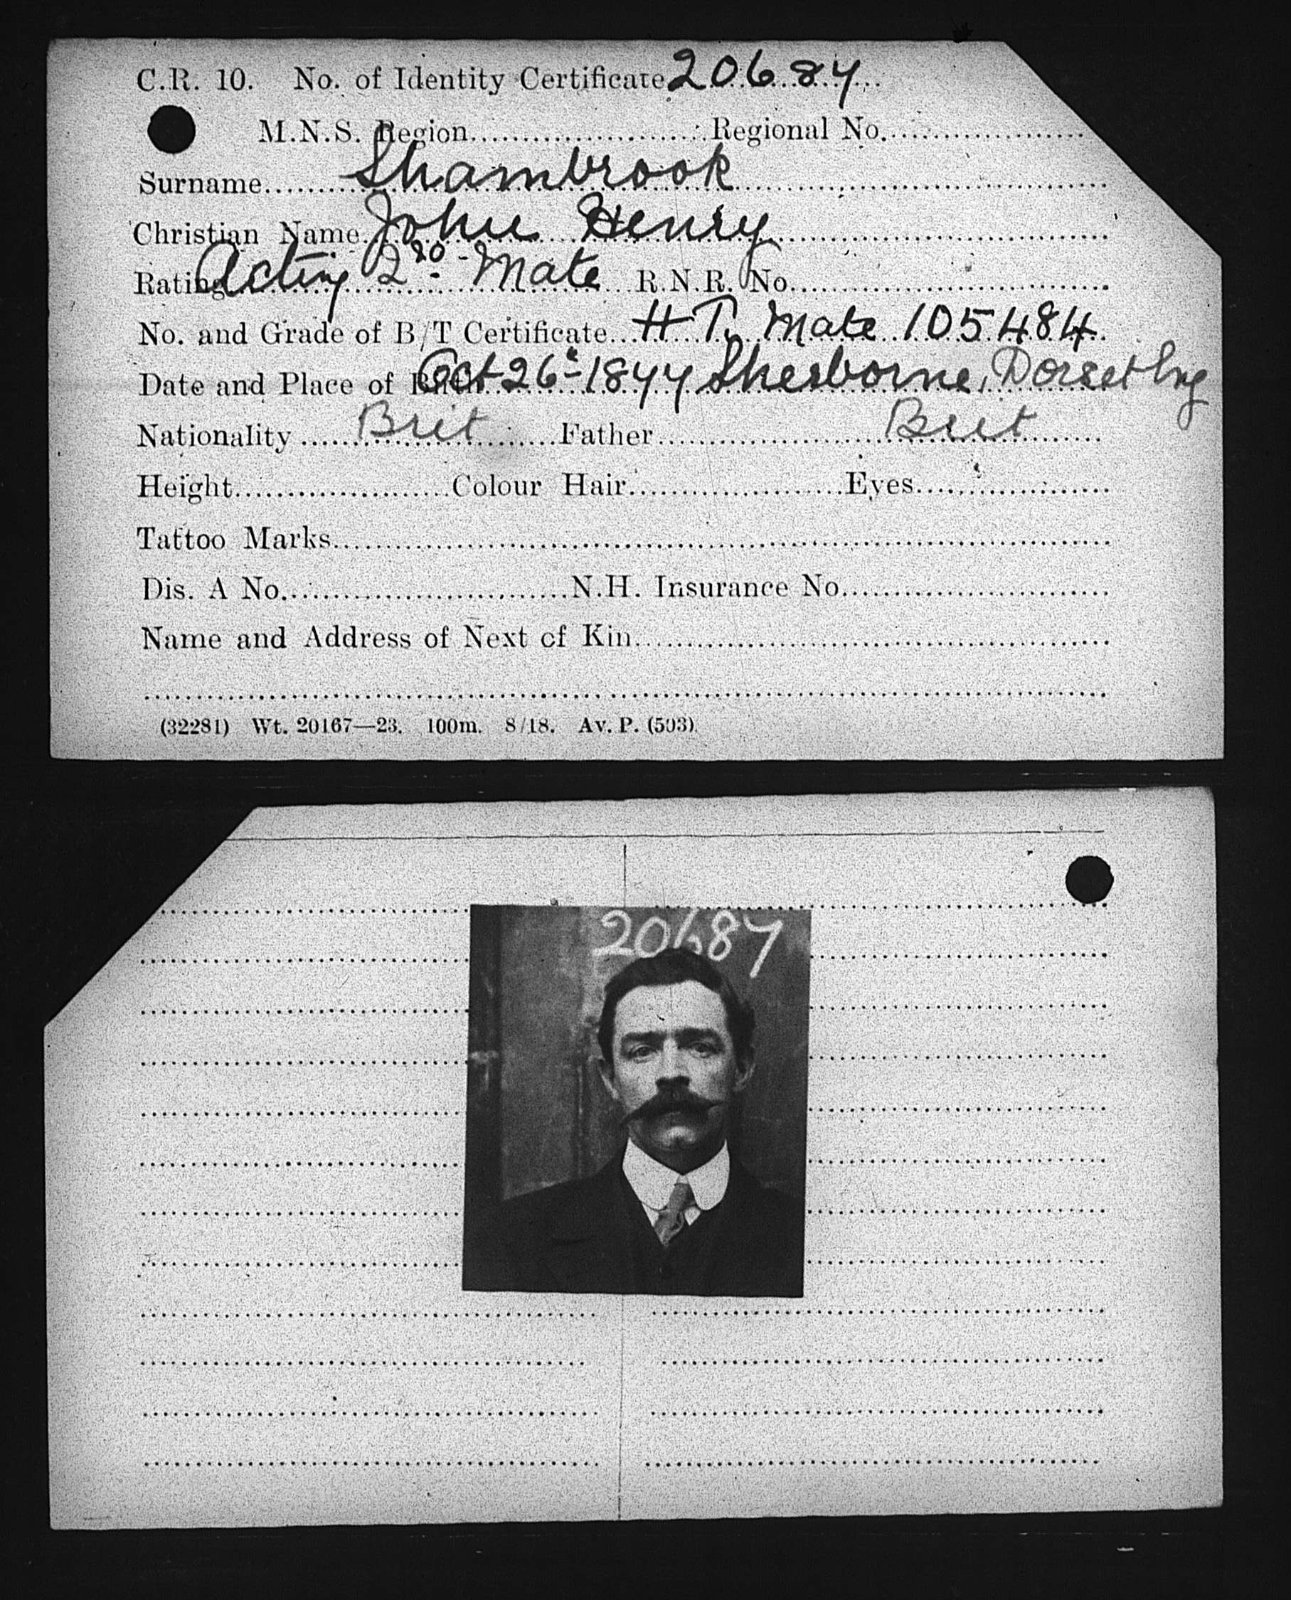 C.R. 10. No. of Identity Certificate 20687
M.N.S. Region Regional No.
Surname Shambrook
Christian Name John Henry
Rating Acting 2ND Mate R.N.R. No
No. and Grade of B/T Certificate H T. Mate 105484
Date and Place of Birth Oct 26t 1877 Sherborne, Dorset Eng
Nationality Brit Father Brit
Height Colour Hair Eyes
Tattoo Marks
Dis. A No. N.H. Insurance No.
Name and Address of Next of Kin
(32281) Wt. 20167—23. 100m. 8/18. Av. P. (503)
20687